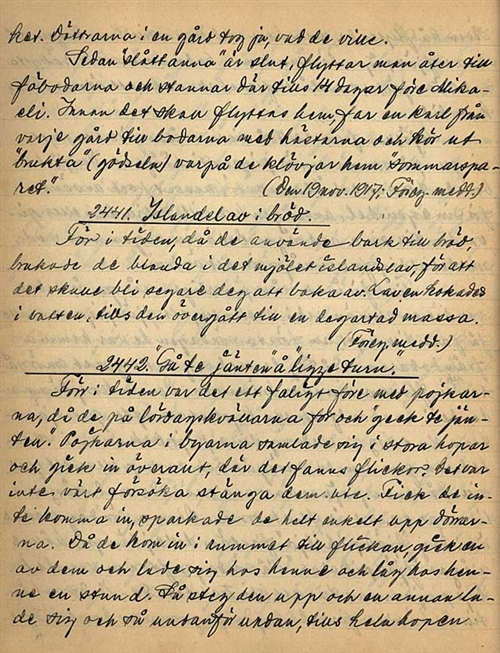 het. Döttrarna i en gård tog ja, vad de ville.
Sedan "slåttanna" är slut, flyttar man åter till
fäbodarna och stannar där tills 14 dagar före Mika-
eli. Innan det skall flyttas hem, far en karl från
varje gård till bodarna med hästarna och kör ut
"brukta" (gödseln) varpå de klövjar hem "sommarspa-
ret."
(Den 19 nov. 1917; Föreg. medd.)
2441. Islandslav i bröd.
För i tiden, då de använde bark till bröd,
brukade de blanda i det mjölet islandslav, för att
det skulle bli segare deg att baka av. Laven kokades
i vatten, tills den övergått till en degartad massa.
(Föreg. medd.)
2442. "Gå te jänten" å "ligge turn."
För i tiden var det ett faligt före med pojkar-
na, då de på lördagskvällarna for och "geck te jän-
ten." Pojkarna i byarna samlade sig i stora hopar
och gick in överallt, där det fanns flickor. Det var
inte värt försöka stänga dem ute. Fick de in-
te komma in, sparkade de helt enkelt upp dörrar-
na. Då de kom in i rummet till flickan, gick en
av dem och lade sig hos henne och låg hos hen-
ne en stund. Så steg den upp och en annan la-
de sig och så undanför undan, tills hela hopen